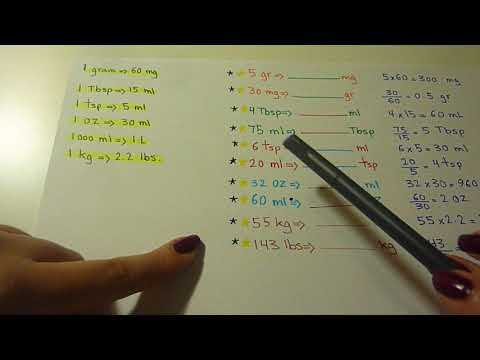 1 gram => 60 mg
1 Tbsp => 15 ml
1 tsp => 5 ml
1 OZ => 30 ml
1000 ml => 1 L
1 kg => 2.2 lbs.
5 gr => ______ mg 5x60 = 300 mg
30 mg => ______ gr 30/60 = 0.5 gr
4 Tbsp => ______ ml 4 x 15 = 60 ml
75 ml => ______ Tbsp 75/15 = 5 Tbsp
6 tsp ______ ml 6 x 5 = 30 ml
20 ml => ______ tsp 20/5 = 4 tsp
32 OZ => ______ ml 32 x 30 = 960
60 ml => ______ OZ 60/30 = 2 OZ
55 kg => ______ 55 x 2.2 =
143 lbs => ______ kg 143